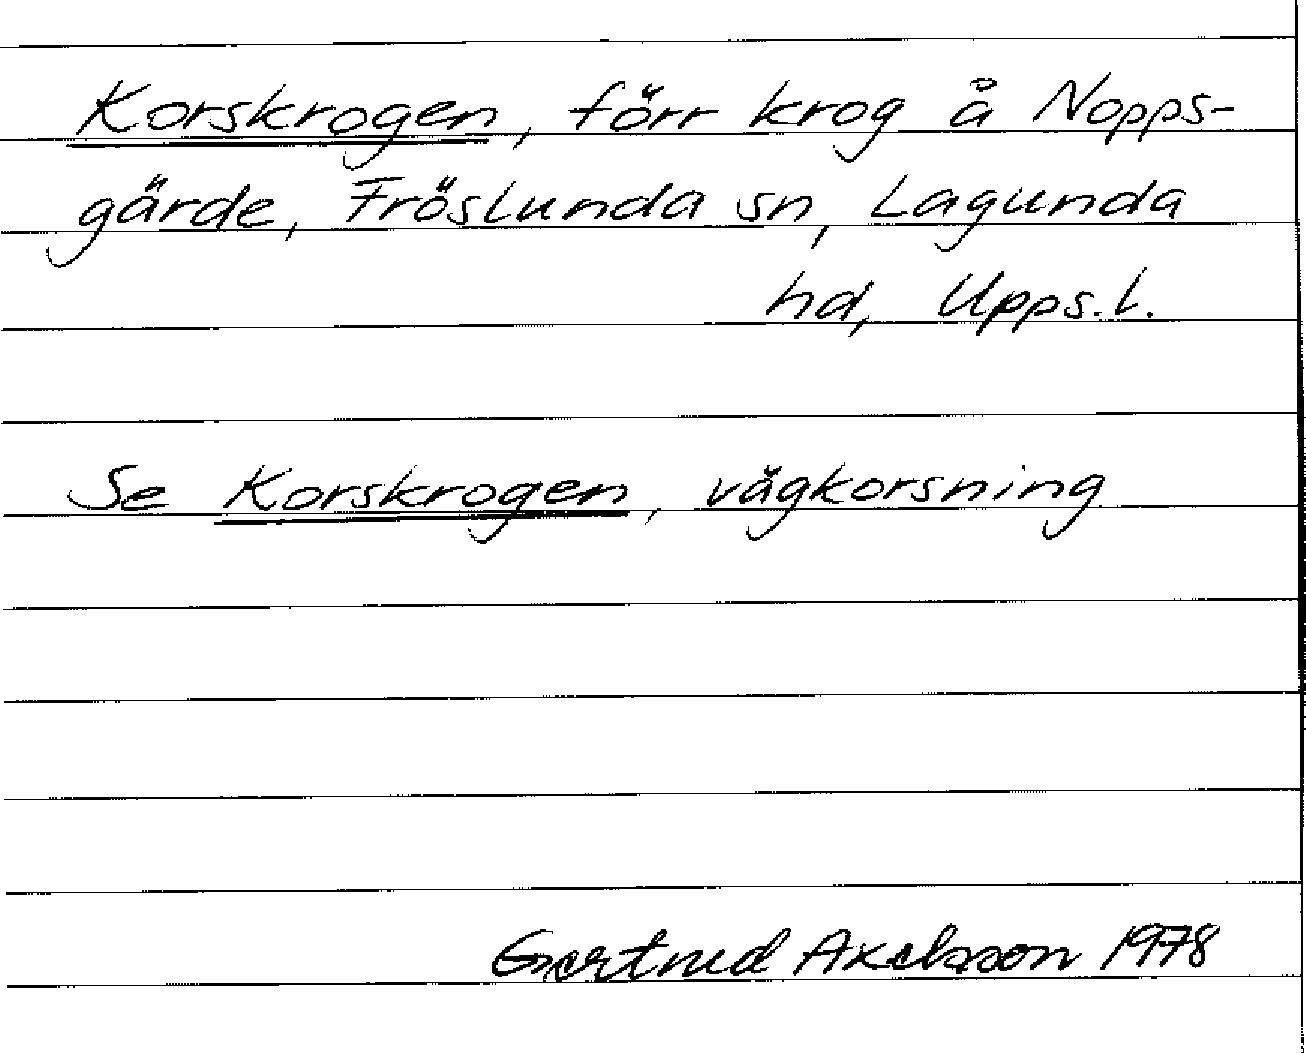 Korskrogen, förr krog å Nopps-
gärde, Fröslunda sn, Lagunda
hd, Upps.l.
Se Korskrogen, vägkorsning
Gertrud Axelsson 1978